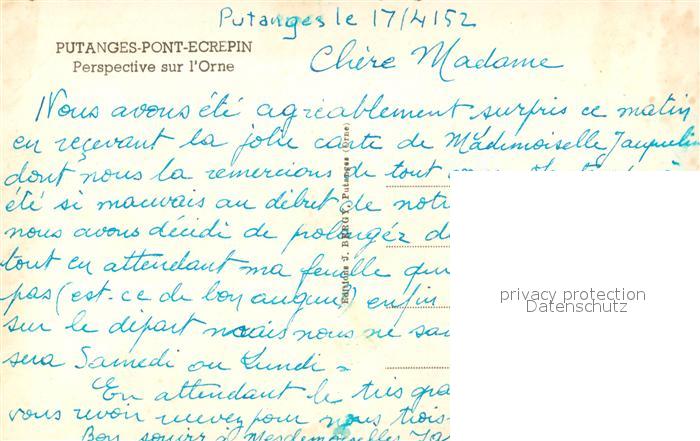 Putanges le 17/4/52
PUTANGES-PONT-ECREPIN
Perspective sur l'Orne
Chère Madame
Nous avons été agréablement surpris ce matin
en reçevant la jolie carte de Mademoiselle Jacqueline
dont nous la remercions de tout
été si mauvais au début de notre
nous avons décidé de prolonger d
tout en attendant ma feuille qui
pas (est-ce de bon augure) enfin
sur le départ mais nous ne sa
sera Samedi ou Lundi
En attendant le très gra
vous revoir recevez pour nous trois
Bon souvenir à Mesdemoiselles Ja
Editions J. BERGY, Putanges (Orne)
privacy protection
Datenschutz